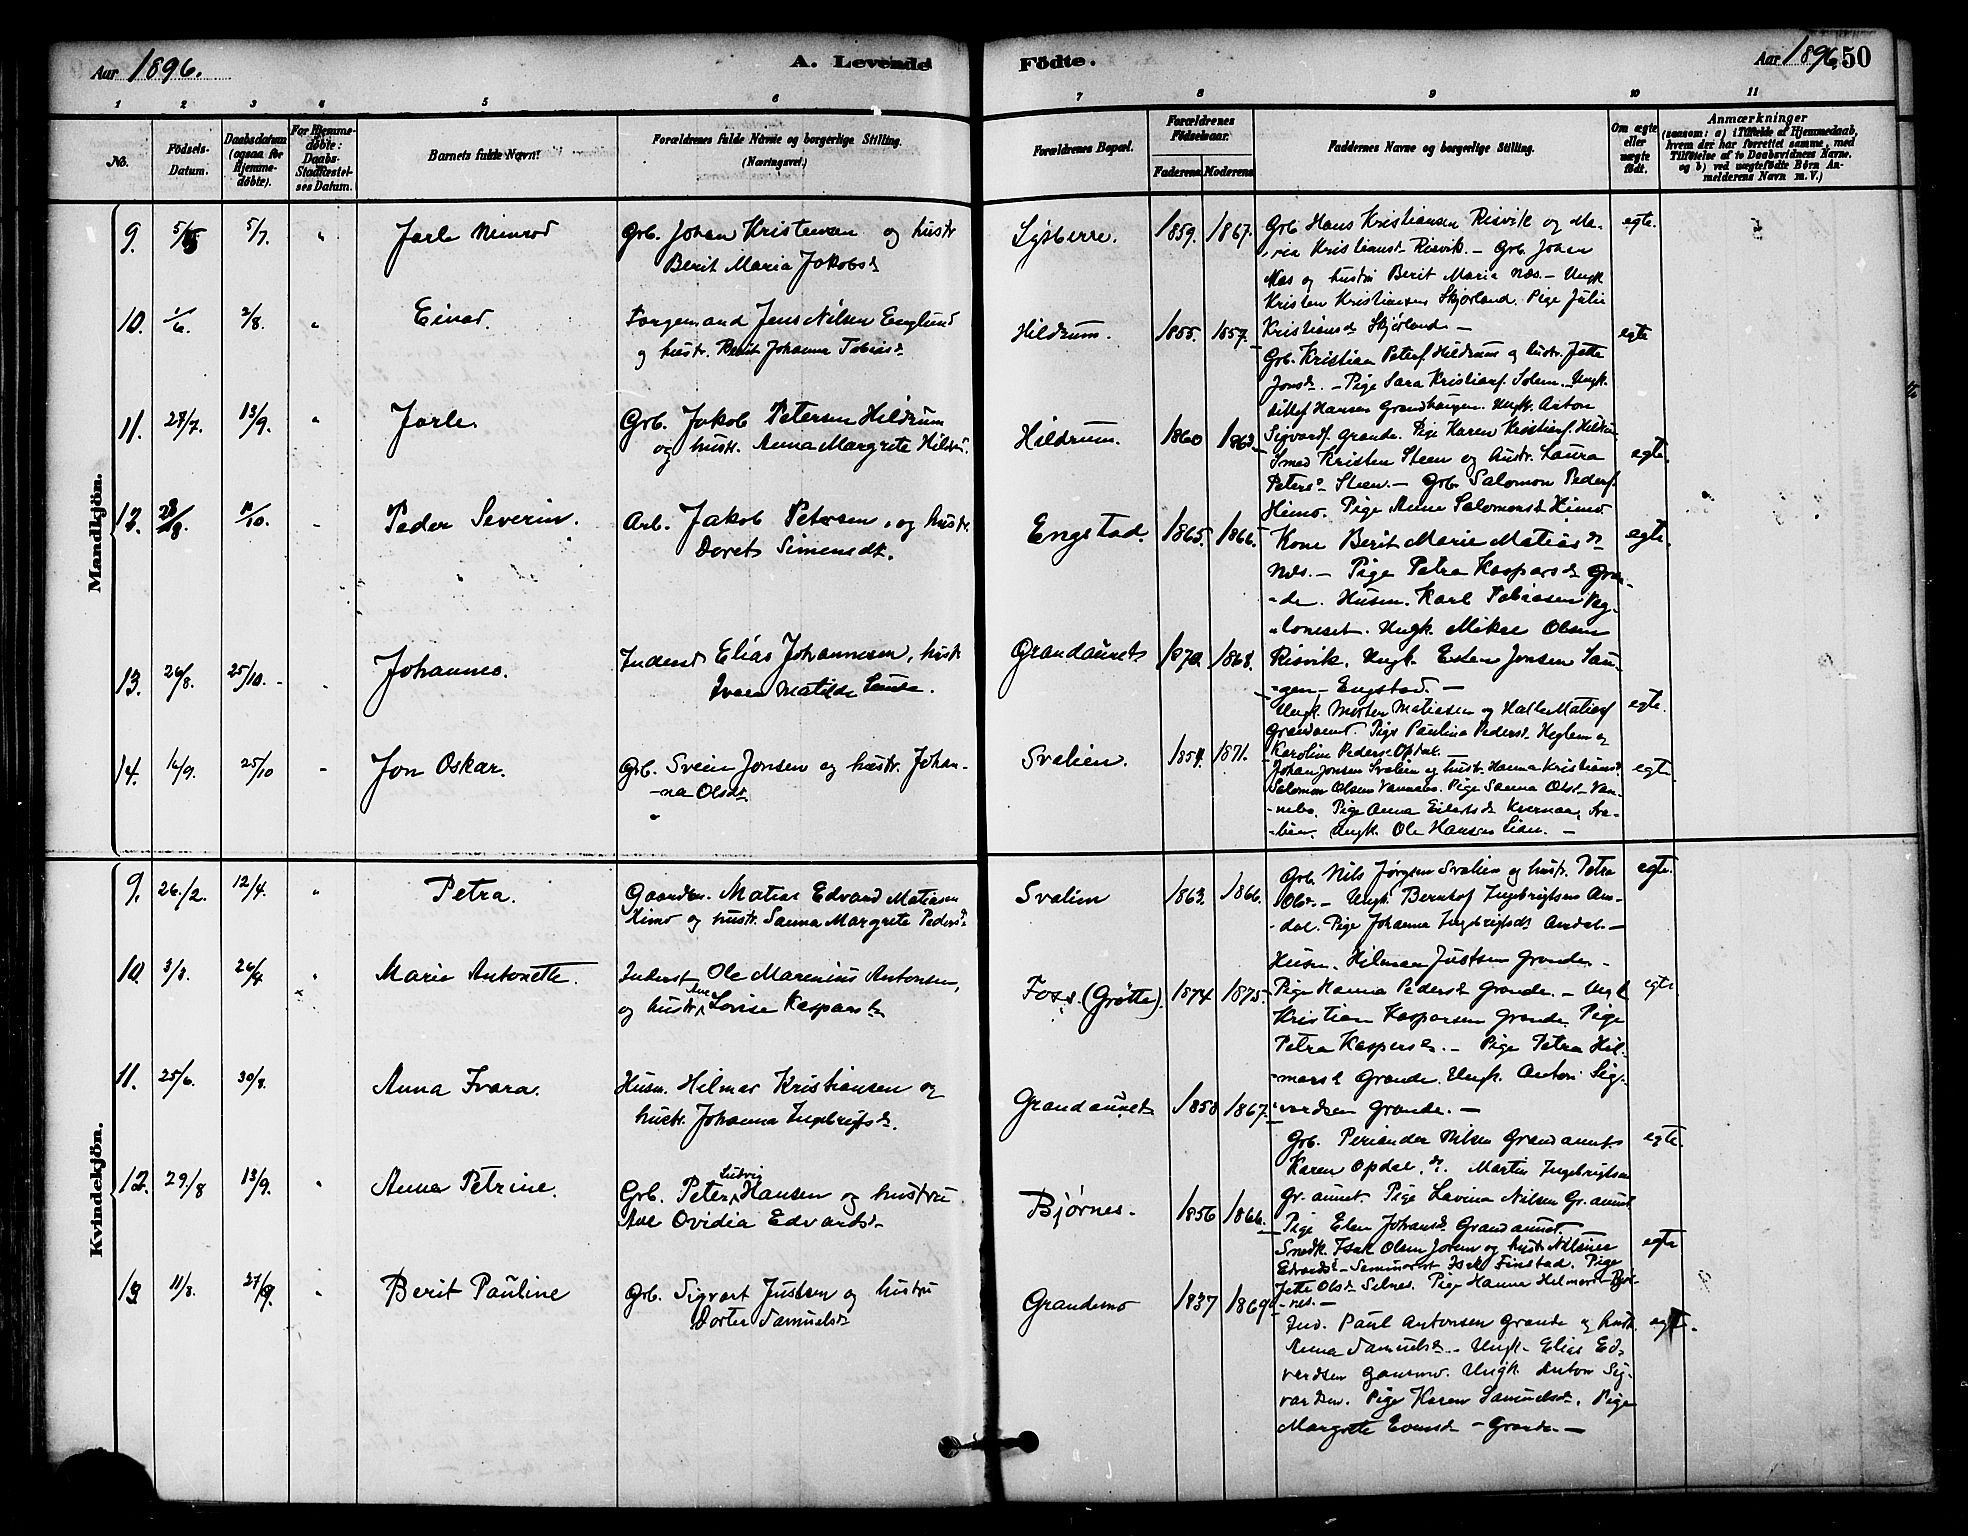 Aar 1896.
A. Levende Fødte.
Aar 1896. 50
1 2 3 4 5 6 7 8 9 10 11
No.
Fødsels-Datum.
Daabsdatum (ogsaa for Hjemmedøbte).
For Hjemmedøbte: Daabs-Stadfæstelses Datum.
Barnets fulde Navn.
Forældrenes fulde Navne og borgerlige Stilling. (Næringsvei.)
Forældrenes Bopæl.
Forældrenes Fødselsaar.
Faderens. Moderens
Faddernes Navne og borgerlige Stilling.
Om ægte eller uægte født.
Anmærkninger
(saasom: a) i Tilfælde af Hjemmedaab, hvem der har forrettet samme, med Tilføielse af to Daabsvidners Navne, og b) ved uægtefødte Børn Anmelderens Navn m. V.)
Mandkjön.
9. 5/5 5/7 " Jarle Nimrod
Grb. Johan Kristensen og hustr
Berit Maria Jakobsd
1859. 1867.
Grb Hans Kristiansen Risvik og Ma-
ria Kristiansd Risvik. — Grb. Johan
Næs og hustru Berit Maria Næs. — Ungk
Kristen Kristiansen Skjørland. Pige Julie
Kristiansd Skjørland. —
egte.
10. 1/6. 2/8. " Einar.
Jens Nilsen Englund
og hustr. Berit Johanna Tobiasd.
Hildrum. 1855. 1857.
Grb. Kristian Petersf Hildrum og hustr. Jette
Jonsd. — Pige Sara Kristiansf. Solem. — Ungk.
Ditlef Hansen Grandhaugen. Ungk. Anton
Sigvardf. Grande. Pige Karen Kristianf. Hildrum
egte
11. 28/7. 13/9. " Jarle.
Grb. Jakob Petersen Hildrum
og hustr. Anna Margrete Hildru.
Hildrum. 1860 1863
Smed Kristen Steen og hustr. Laura
Petersd Steen. — Grb. Salomon Pedersf.
Himo. Pige Anna Salomonsd Himo
egte.
12. 28/8. 11/10. " Peder Severin.
Arb. Jakob Petersen, og hustr.
Dorets Simonsdt.
Engstad. 1865. 1866.
Kone Berit Marie Matiasd
Næs. — Pige Petra Kaspersd Gran-
-de. Husm. Karl Tobiasen
Ungk. Mikal Olsen
Risvik. Ungk. Esten Jonsen
Engstad. —
egte.
13. 26/8. 25/10. " Johannes.
Inderst Elias Johannesen, hustr
Ivara Matilde
Grandaunet. 1870. 1868.
Ungk. Morten Matiasen og Halle Matiasf
Grandaunet. Pige Paulina Pedersd Heglem og
Karoline Pedersd Opdal. —
egte.
14. 16/9. 25/10 " Jon Oskar.
Grb. Svein Jonsen og hustr. Johan-
-na Olsdt
Svalien. 1854. 1871.
Johan Jonsen Svalien og hustr. Hanna Kristiansd.
Salomon Olsen Vannebo. Pige Sanna Olsd Van-
nebo. Pige Anna Eilertsd Kvernaa, Sva-
-lien. Ungk. Ole Hansen Lian. —
egte.
Kvindekjön.
9. 26./2. 12/4. " Petra.
Gaardm. Matias Edvard Matiasen
Himo og hustr. Sanna Margrete Pedersd
Svalien 1863. 1866.
Grb. Nils Jørgsen Svalien og hustr. Petra
Olsd. — Ungk. Bernhof Ingebrigtsen Am-
-dal. Pige Johanna Ingebrigtsdt Amdal. —
egte.
10. 3/3. 26/4 " Marie Antonette.
Inderst Ole Marenius Antonsen,
og hustr. Ane Lovise Kaspersd
Foss. (Grøtte). 1874 1875.
Husm. Hilmar Justsen Grande. —
Pige Hanna Pedersd Grande. — Ungk
Kristian Kaspersen Grande. Pige
Petra Kaspersd. — Pige Petra Hil-
marsd Grande. Ungk. Anton Sig-
vardsen Grande. —
egte.
11. 25/6. 30/8. " Anna Ivara.
Husm. Hilmar Kristiansen og
hustr. Johanna Ingebrigtsd.
Grandaunet 1858 1867.
Grb. Periander Nilsen Grandaunet
Karen Opdal, d. Martin Ingebrigtsen
Gr. aunet. Pige Lavina Nilsen Gr. aunet
Pige Elen Johansd. Grandaunet. —
egte.
12. 29/8 13/9. " Anna Petrine.
Grb. Peter Ludvig Hansen og hustru
Ane Ovidia Edvardsd
Bjørnes. 1856 1866.
Smedk. Isak Olsen Jorem og hustr. Nilsine
Edvardsd — Seminarist Isak Finstad. Pige
Jette Olsd Selnes. Pige Hanna Hilmarsd Bjør-
-nes. —
egte
13. 11/8. 27/9. " Berit Pauline
Grb. Sigvart Justsen og hustru
Dortea Samuelsd
Grandemo 1837 1869
Ind. Paul Antonsen Grande og hustr.
Anna Samuelsd. — Ungk. Elias Ed-
vardsen Gansmo. Ungk. Anton Sig-
vardsen. Pige Karen Samuelsd. Pige
Margrete Evensd — Grande. —
egte.